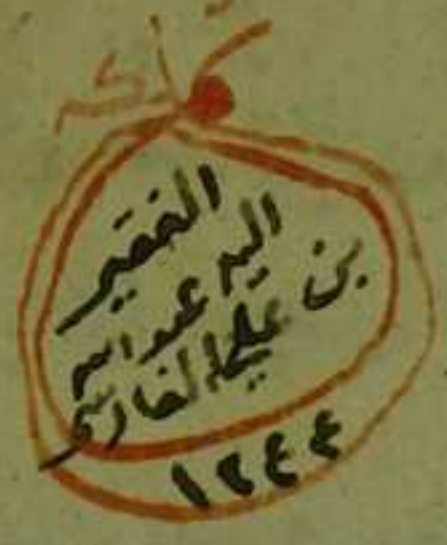 الفقير
اليه عبد الله
بن علي الفارسي
١٢٤٤